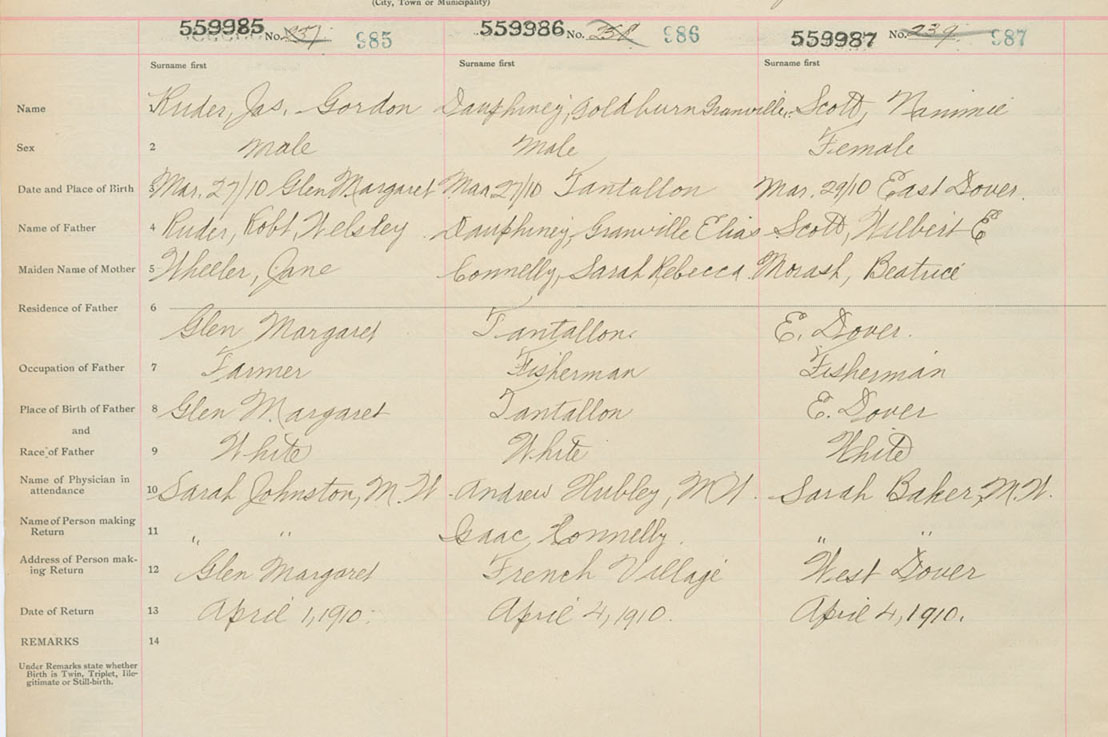 (City, Town or Municipality)
559985 No. 237 985 559986 No. 238 986 559987 No. 239 987
Surname first Surname first Surname first
Name 1 Ruder, Jas. Gordon Dauphiney, Goldburn Granville. Scott, Nammie
Sex 2 Male Male Female
Date and Place of Birth 3 Mar. 27/10 Glen Margaret Mar 27/10 Tantallon Mar. 29/10 East Dover.
Name of Father 4 Ruder, Robt, Welsley Dauphiney, Granville Elias Scott, Wilbert E
Maiden Name of Mother 5 Wheeler, Jane Connelly, Sarah Rebecca Morash, Beatrice
Residence of Father 6
Glen Margaret Tantallon. E. Dover.
Occupation of Father 7 Farmer Fisherman Fisherman
Place of Birth of Father 8 Glen Margaret Tantallon E. Dover
and
Race of Father 9 White White White
Name of Physician in attendance 10 Sarah Johnston, M.W. Andrew Hubley, M.W. Sarah Baker, M.W.
Name of Person making Return 11 " " Isaac Connelly. " "
Address of Person mak-
ing Return 12 Glen Margaret French Village West Dover
Date of Return 13 April 1, 1910. April 4, 1910. April 4, 1910.
REMARKS 14
Under Remarks state whether
Birth is Twin, Triplet, Ille-
gitimate or Still-birth.